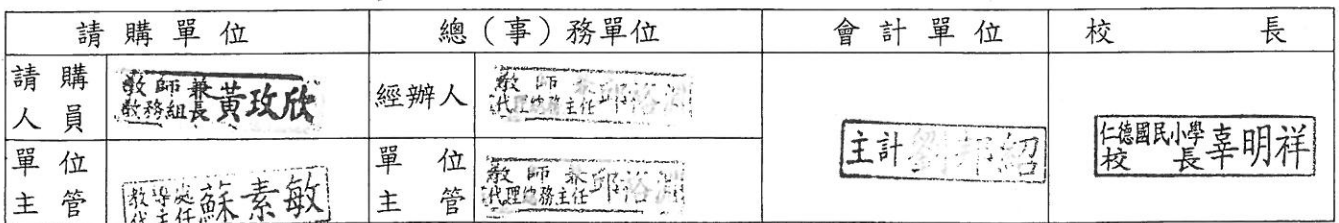 請購單位
總（事）務單位
會計單位
校長
請購人員
教師兼
教務組長黃玫欣
經辦人
教師兼
代理總務主任邱
主計
仁德國民小學
校長辜明祥
單位主管
教導處
代主任蘇素敏
單位主管
教師兼
代理總務主任邱